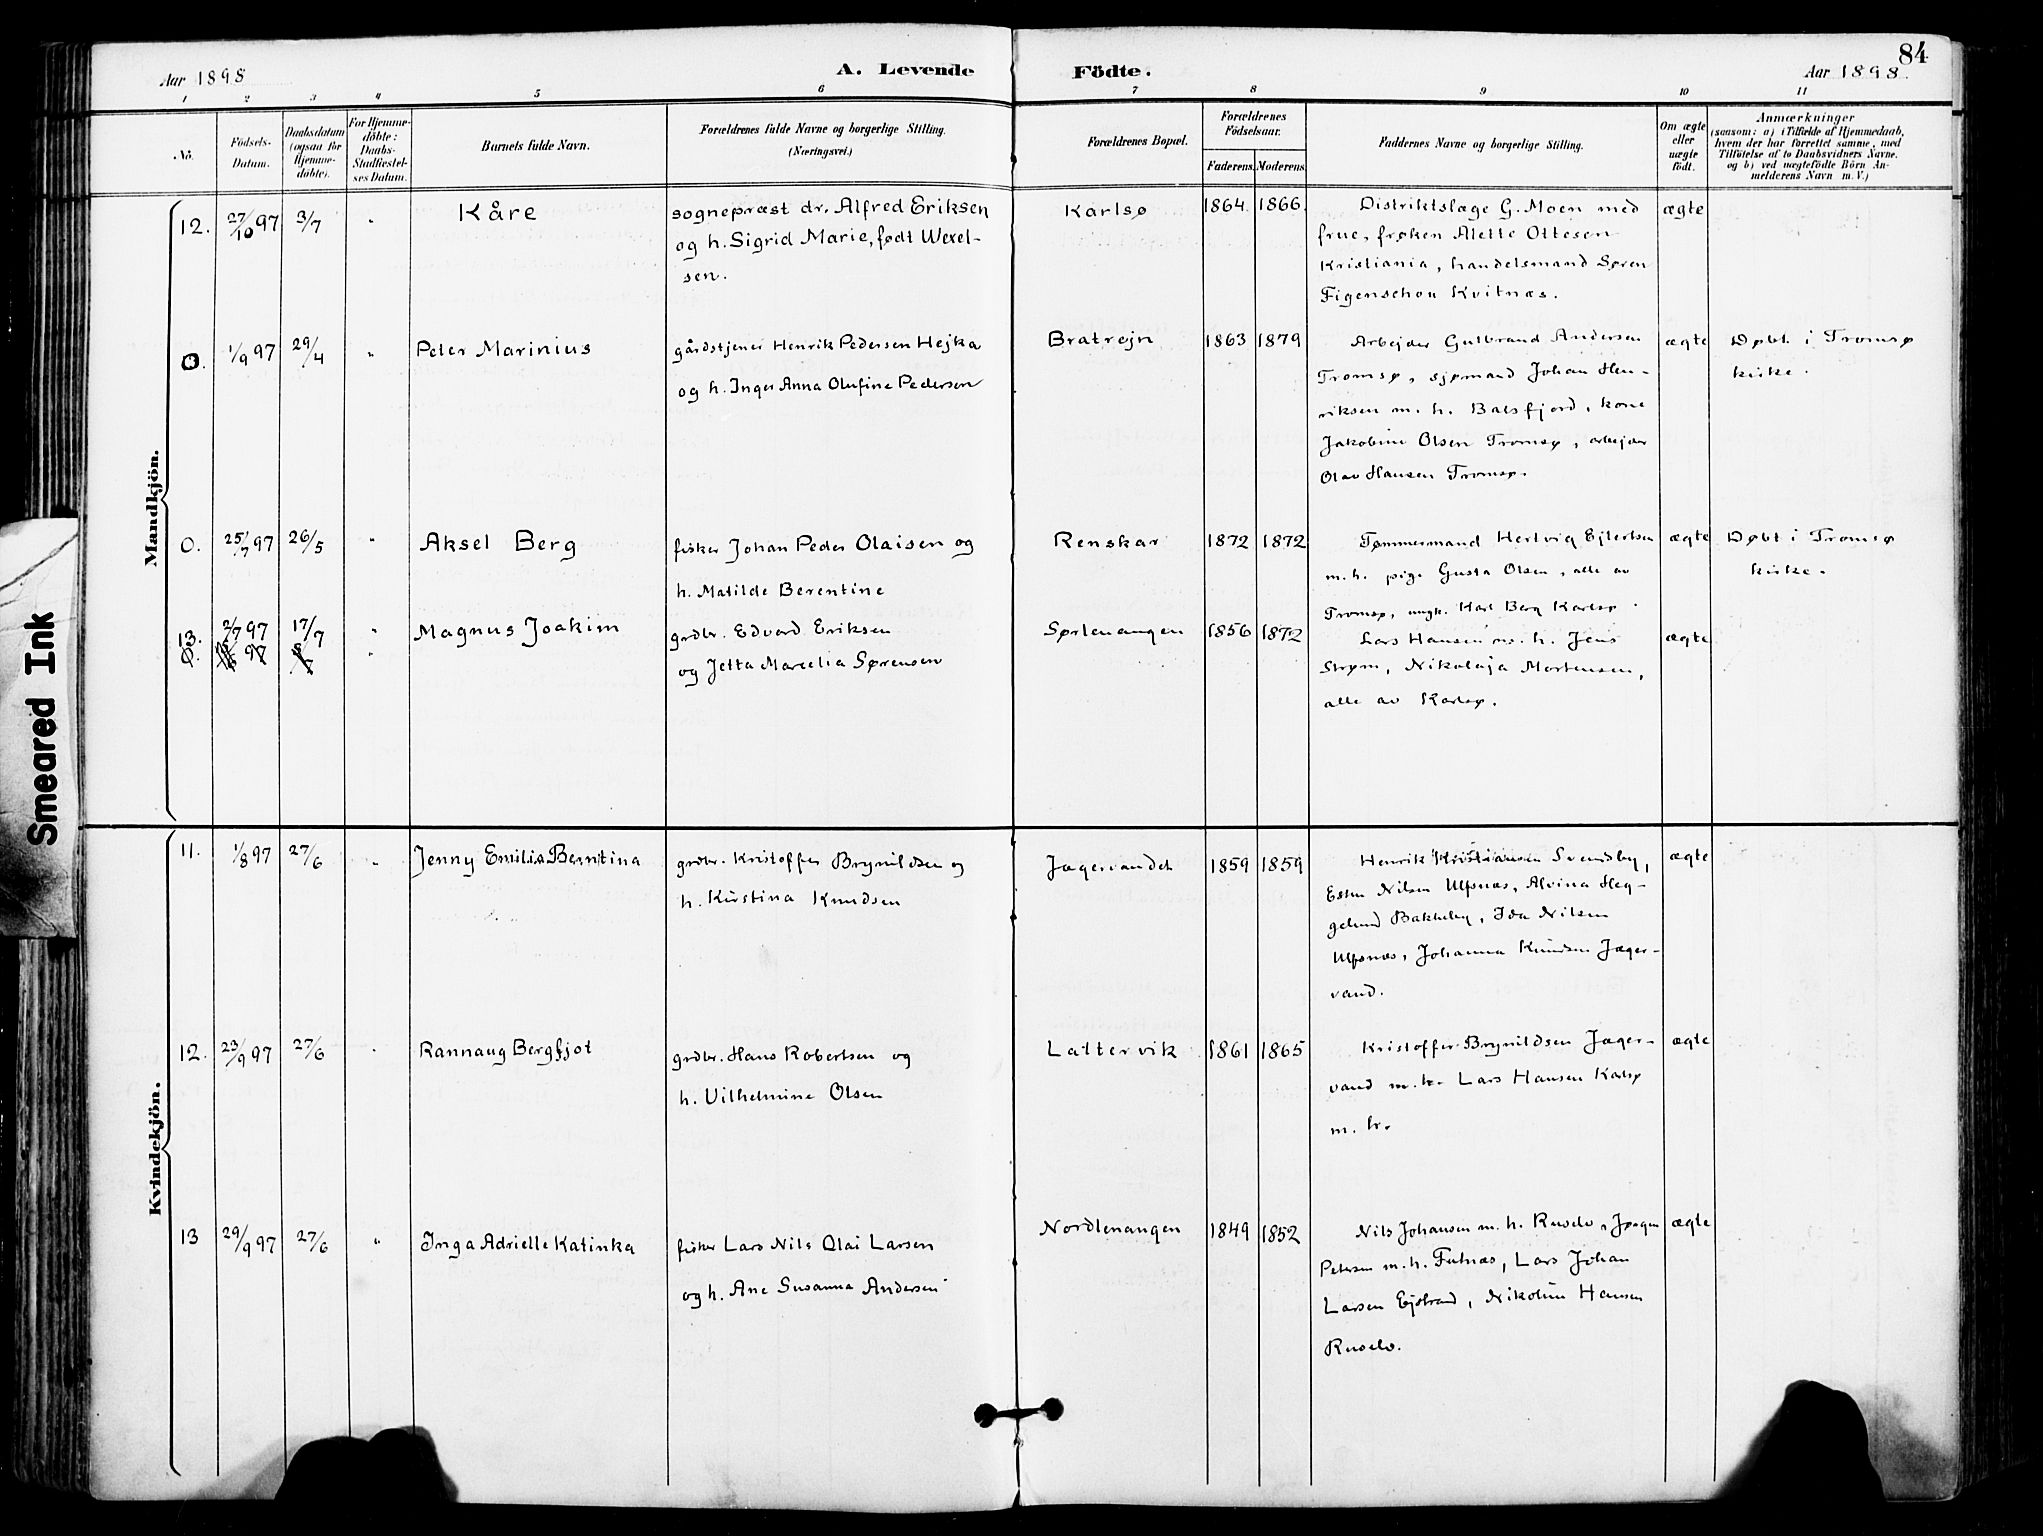 84
Aar 1898
A. Levende
Födte.
Aar 1898
1 2 3 4 5 6 7 8 9 10 11
No.
Födsels-
Datum.
Daabsdatum
(ogsaa for
Hjemme-
døbte).
For Hjemme-
døbte:
Daabs-
Stadfæstel-
ses Datum.
Barnets fulde Navn.
Forældrenes fulde Navne og borgerlige Stilling.
(Næringsvei.)
Forældrenes Bopæl.
Forældrenes
Födselsaar.
Faderens. Moderens.
Faddernes Navne og borgerlige Stilling.
Om ægte
eller
uægte
födt.
Anmærkninger
(saasom: a) i Tilfælde af Hjemmedaab,
hvem der har forrettet samme, med
Tilföielse af to Daabsvidners Navne.
og b) ved uægtefödte Börn An-
melderens Navn m. V.)
Mandkjön.
12. 27/10 97 3/7 " Kåre
sognepræst dr. Alfred Eriksen
og h. Sigrid Marie, født Wexel-
sen.
Karlsø 1864. 1866.
Distriktslæge G. Moen med
frue, frøken Alette Ottesen
Kristiania, handelsmand Søren
Figenschou Kvitnæs.
ægte
0. 1/9 97 29/4 " Peter Marinius
gårdstjener Henrik Pedersen Hejka
og h. Inger Anna Olufine Pedersen
Bratrejn 1863 1879
Arbejder Gulbrand Andersen
Tromsø, sjømand Johan Hen-
riksen m. h. Balsfjord, kone
Jakobine Olsen Tromsø, arbejder
Olav Hansen Tromsø.
ægte
Døbt i Tromsø
kirke.
0. 25/7 97 26/5 " Aksel Berg
fisker Johan Peder Olaisen og
h. Matilde Berentine
Renskar 1872 1872
Tømmermand Hertvig Ejlertsen
m. h. pige Gusta Olsen, alle av
Tromsø, ungk. Karl Berg Karlsø.
ægte
Døbt i Tromsø
kirke.
13. 2/7 97 17/7 " Magnus Joakim
0. 97 "
grdbr. Edvard Eriksen
og Jetta Marcelia Sørensen
Sørlenangen 1856 1872
Lars Hansen m. h. Jens
Strøm, Nikolaja Mortensen,
alle av Karlsø.
ægte
Kvindekjön.
11. 1/8 97 27/6 " Jenny Emilia Berntina
grdbr. Kristoffer Brynildsen og
h. Kirstina Knudsen
Jægervandet 1859 1859
Henrik Kristiansen Svendsby,
Esten Nilsen Ulfsnæs, Alvina Heg-
gelund Bakkeby, Ida Nilsen
Ulfsnæs, Johanna Knudsen Jæger-
vand.
ægte
12. 23/9 97 27/6 " Rannaug Bergfjot
grdbr. Hans Robertsen og
h. Vilhelmine Olsen
Lattervik 1861 1865
Kristoffer Brynildsen Jæger-
vand m. h. Lars Hansen Karlsø
m. h.
ægte
13 29/9 97 27/6 " Inga Adrielle Katinka
fisker Lars Nils Olai Larsen
og h. Ane Susanna Andersen
Nordlenangen 1849 1852
Nils Johansen m. h. Russelv, Jørgen
Petersen m. h. Futnæs, Lars Johan
Larsen Ejstrand, Nikoline Hansen
Russelv.
ægte
Smeared Ink